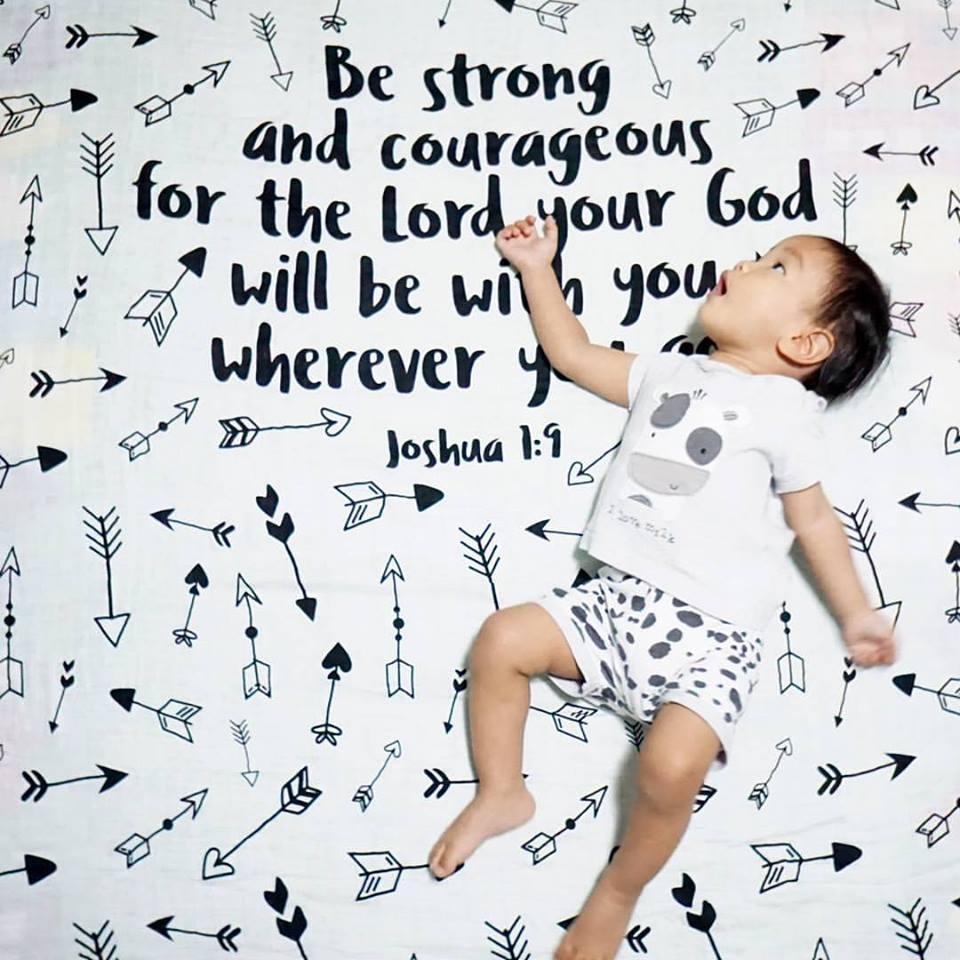 Be strong
and courageous
for the Lord your God
will be with you
wherever you go
Joshua 1:9
I love